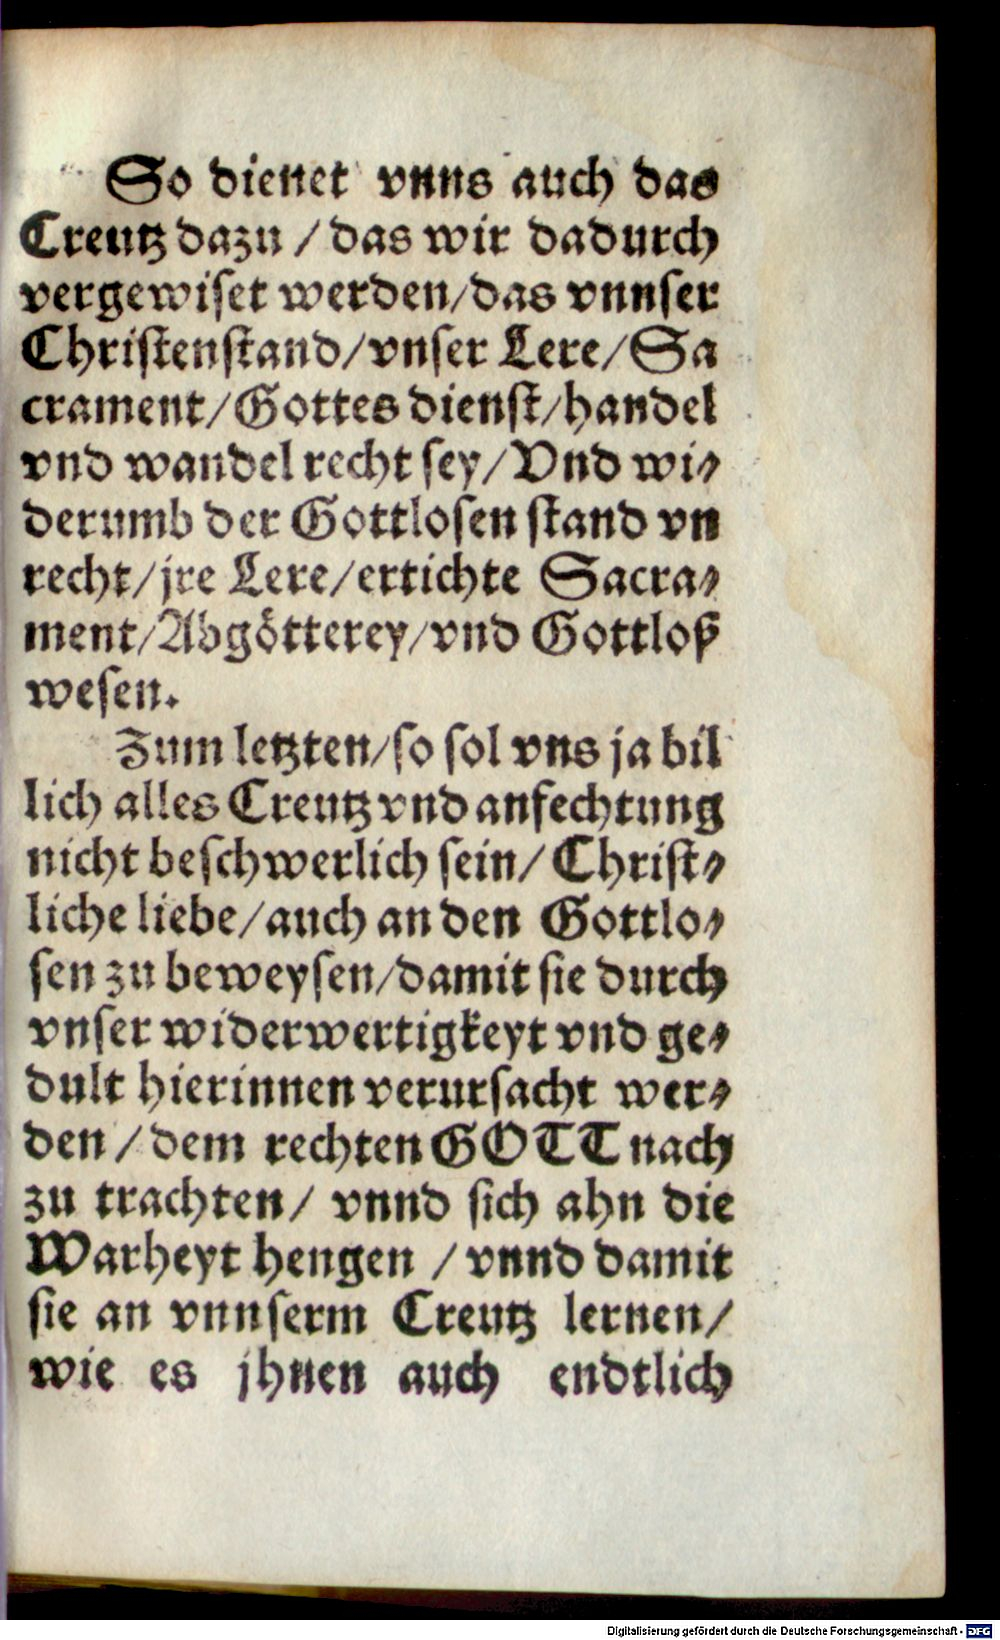 So dienet vnns auch das
Creutz dazu / das wir dadurch
vergewiset werden/das vnnser
Christenstand/vnser Lere/Sa
crament/Gottes dienst/handel
vnd wandel recht sey/Vnd wi⸗
derumb der Gottlosen stand vn
recht/jre Lere/ertichte Sacra⸗
ment/Abgötterey/vnd Gottloß
wesen.
Zum letzten/so sol vns ja bil
lich alles Creutz vnd anfechtung
nicht beschwerlich sein/ Christ⸗
liche liebe/auch an den Gottlo⸗
sen zu beweysen/damit sie durch
vnser widerwertigkeyt vnd ge⸗
dult hierinnen verursacht wer⸗
den / dem rechten GOTT nach
zu trachten/ vnnd sich ahn die
Warheyt hengen / vnnd damit
sie an vnnserm Creutz lernen/
wie es jhnen auch endtlich
Digitalisierung gefördert durch die Deutsche Forschungsgemeinschaft - DFG